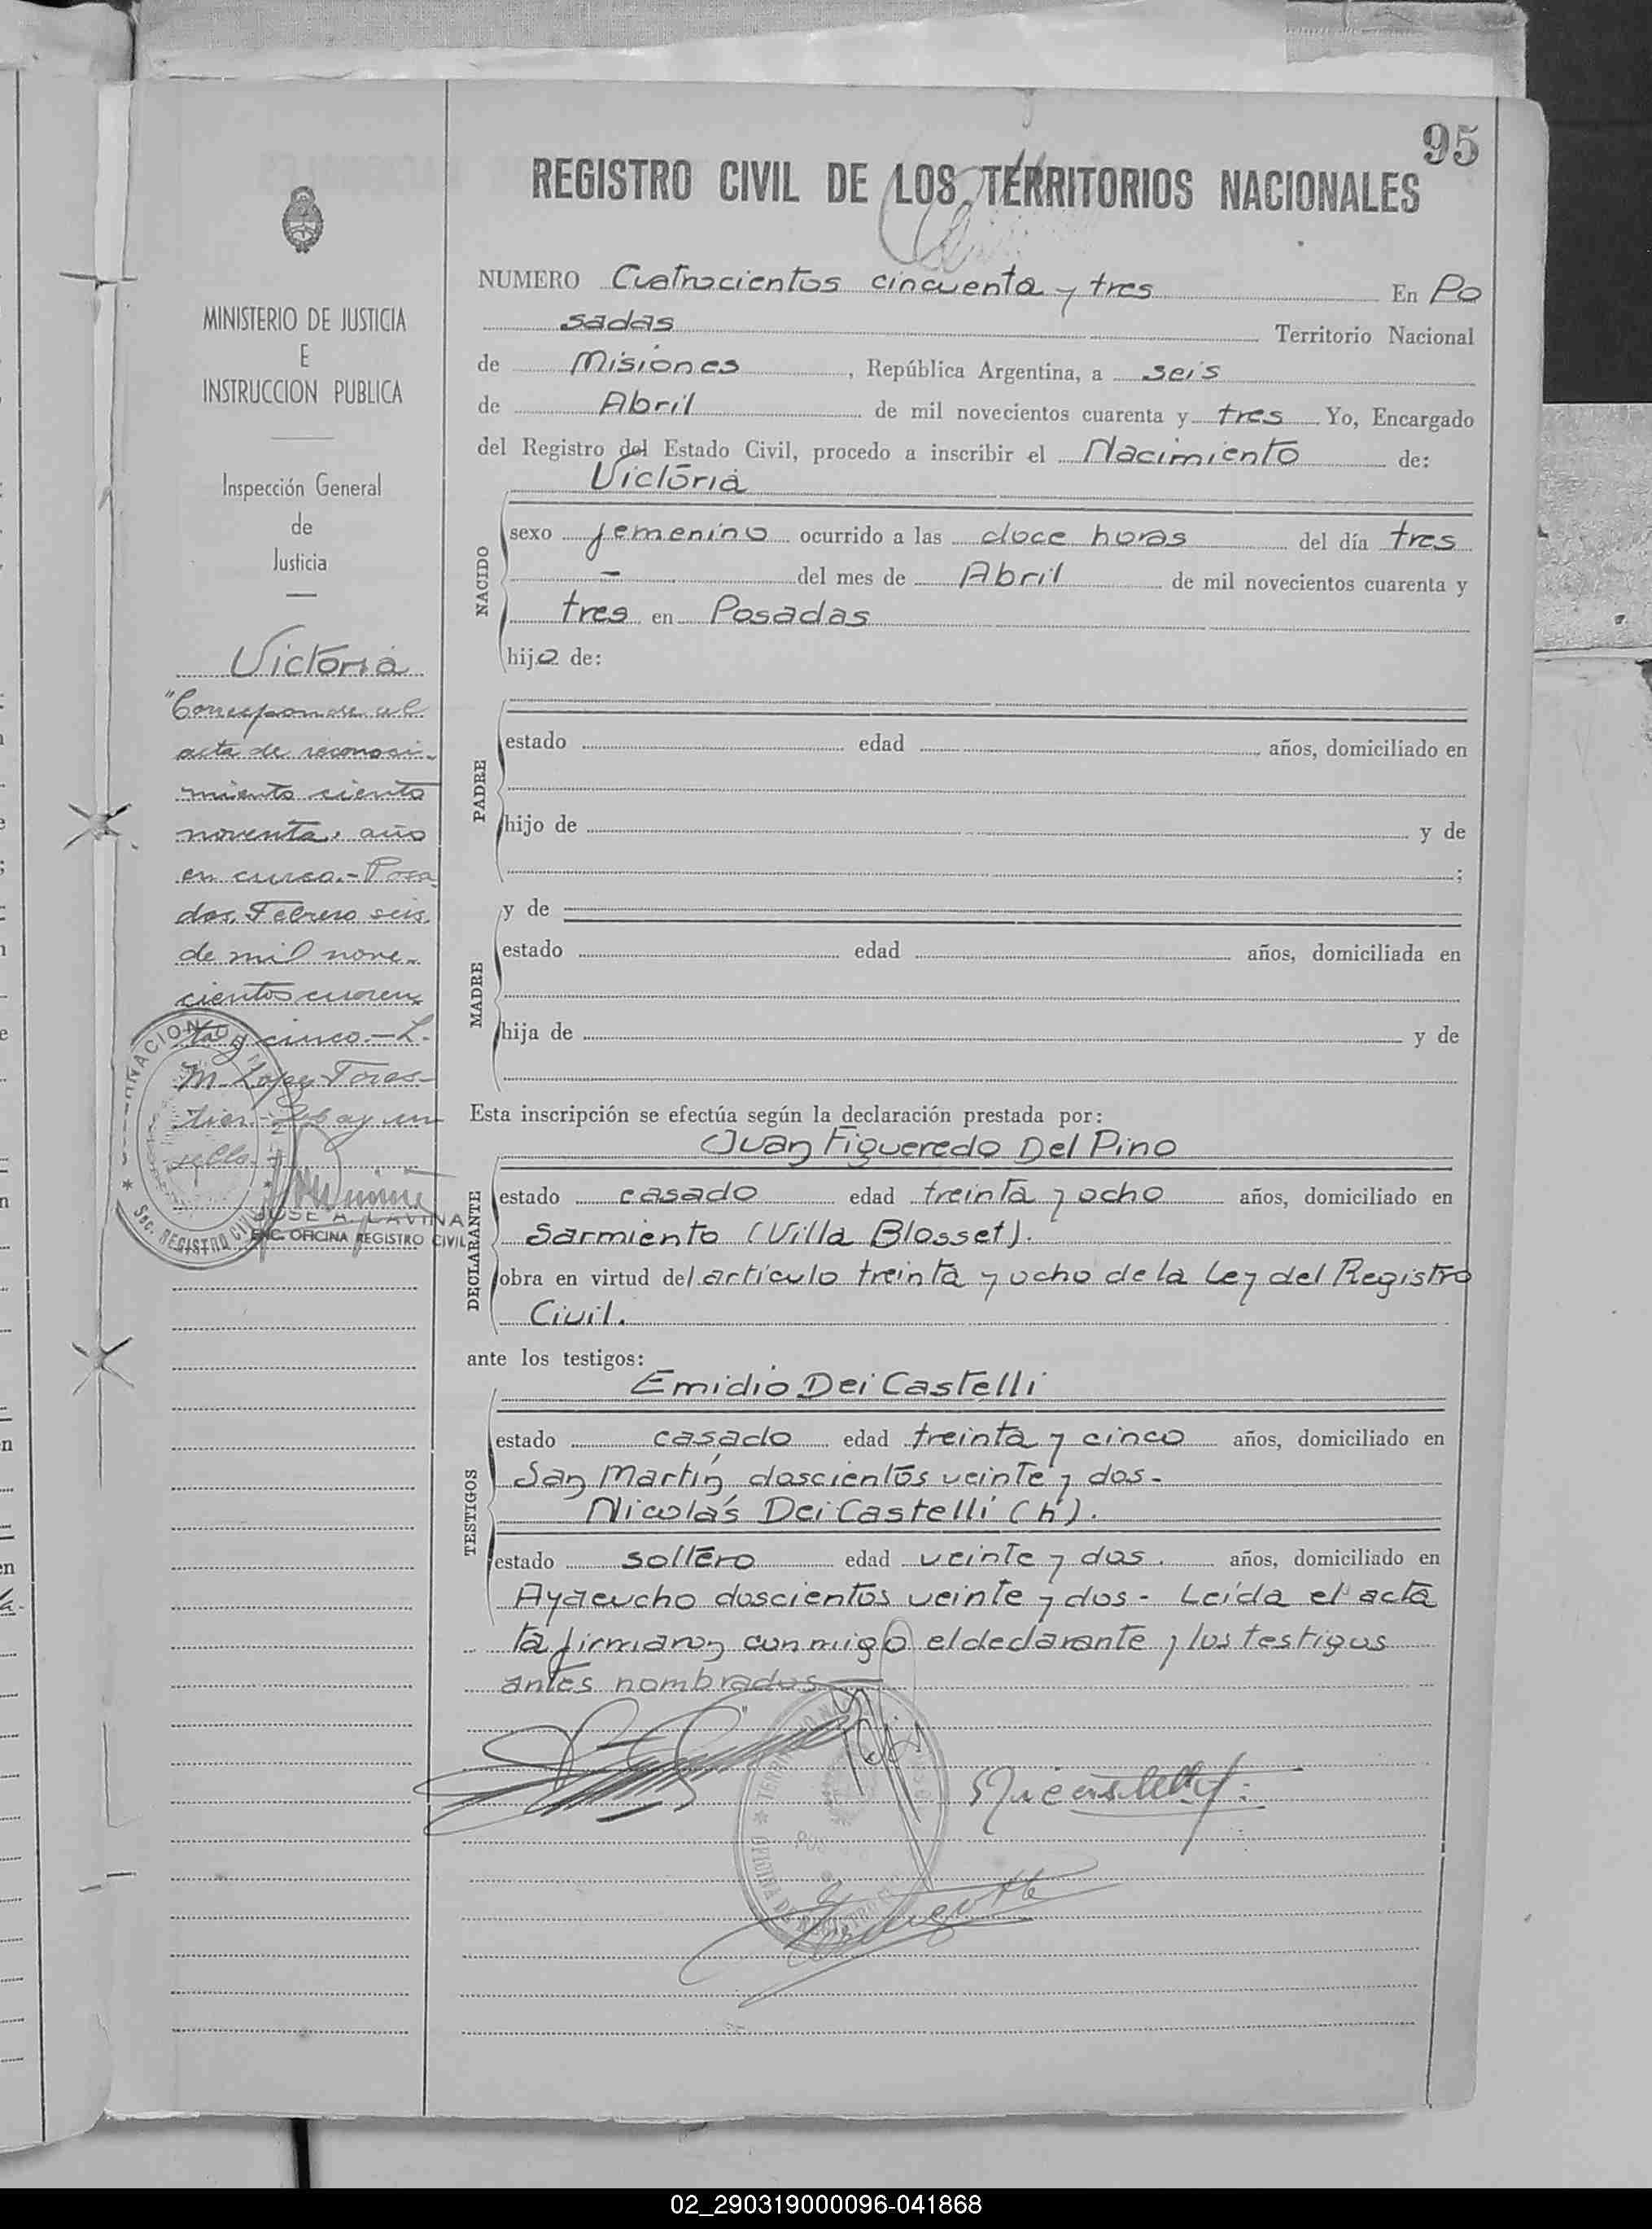 95
REGISTRO CIVIL DE LOS TERRITORIOS NACIONALES
MINISTERIO DE JUSTICIA
E
INSTRUCCION PUBLICA
Inspección General
de
Justicia
Victoria
"Corresponde al
acta de reconoci-
miento ciento
noventa, año
en curso.- Posa
das, Febrero seis
de mil nove-
cientos cuaren
ta y cinco.- L.
M. Lopez Torres-
Hay un
sello.
JOSE A. LAVINA
ENC. OFICINA REGISTRO CIVIL
Sec. REGISTRO CIVIL
NUMERO Cuatrocientos cincuenta y tres En Po
sadas Territorio Nacional
de Misiones, República Argentina, a seis
de Abril de mil novecientos cuarenta y tres Yo, Encargado
del Registro del Estado Civil, procedo a inscribir el Nacimiento de:
Victoria
NACIDO
sexo femenino ocurrido a las doce horas del día tres
- del mes de Abril de mil novecientos cuarenta y
tres en Posadas
hija de:
PADRE
estado edad años, domiciliado en
hijo de y de
;
y de
MADRE
estado edad años, domiciliada en
hija de y de
Esta inscripción se efectúa según la declaración prestada por:
Juan Figueredo Del Pino
DECLARANTE
estado casado edad treinta y ocho años, domiciliado en
Sarmiento (Villa Blosset).
obra en virtud del artículo treinta y ocho de la Ley del Registro
Civil.
ante los testigos:
Emidio Dei Castelli
TESTIGOS
estado casado edad treinta y cinco años, domiciliado en
San Martín doscientos veinte y dos-
Nicolás Dei Castelli (h).
estado soltero edad veinte y dos. años, domiciliado en
Ayacucho doscientos veinte y dos- Leída el acta
la firmaron conmigo el declarante y los testigos
antes nombrados
02_290319000096-041868